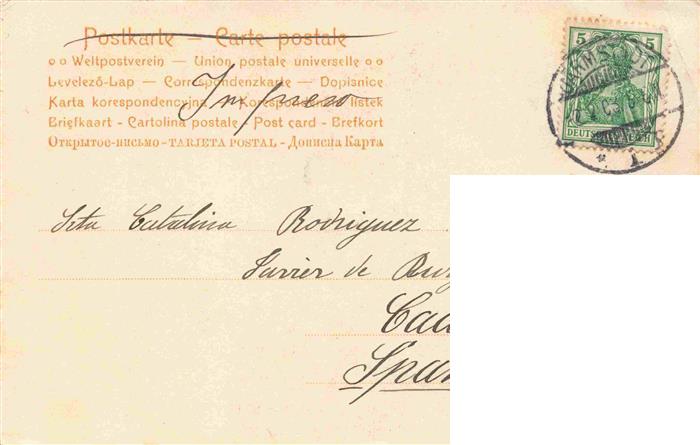 Postkarte — Carte postale
Weltpostverein — Union postale universelle
Levelező-Lap — Correspondenzkarte — Dopisnice
Karta korespondencyjna — Korespondenční lístek
Briefkaart - Cartolina postale - Post card - Brefkort
Открытое-письмо - TARJETA POSTAL - Дописна Карта
Impreso
5 5
DEUTSCHES
Srta Catalina Rodriguez
Javier de